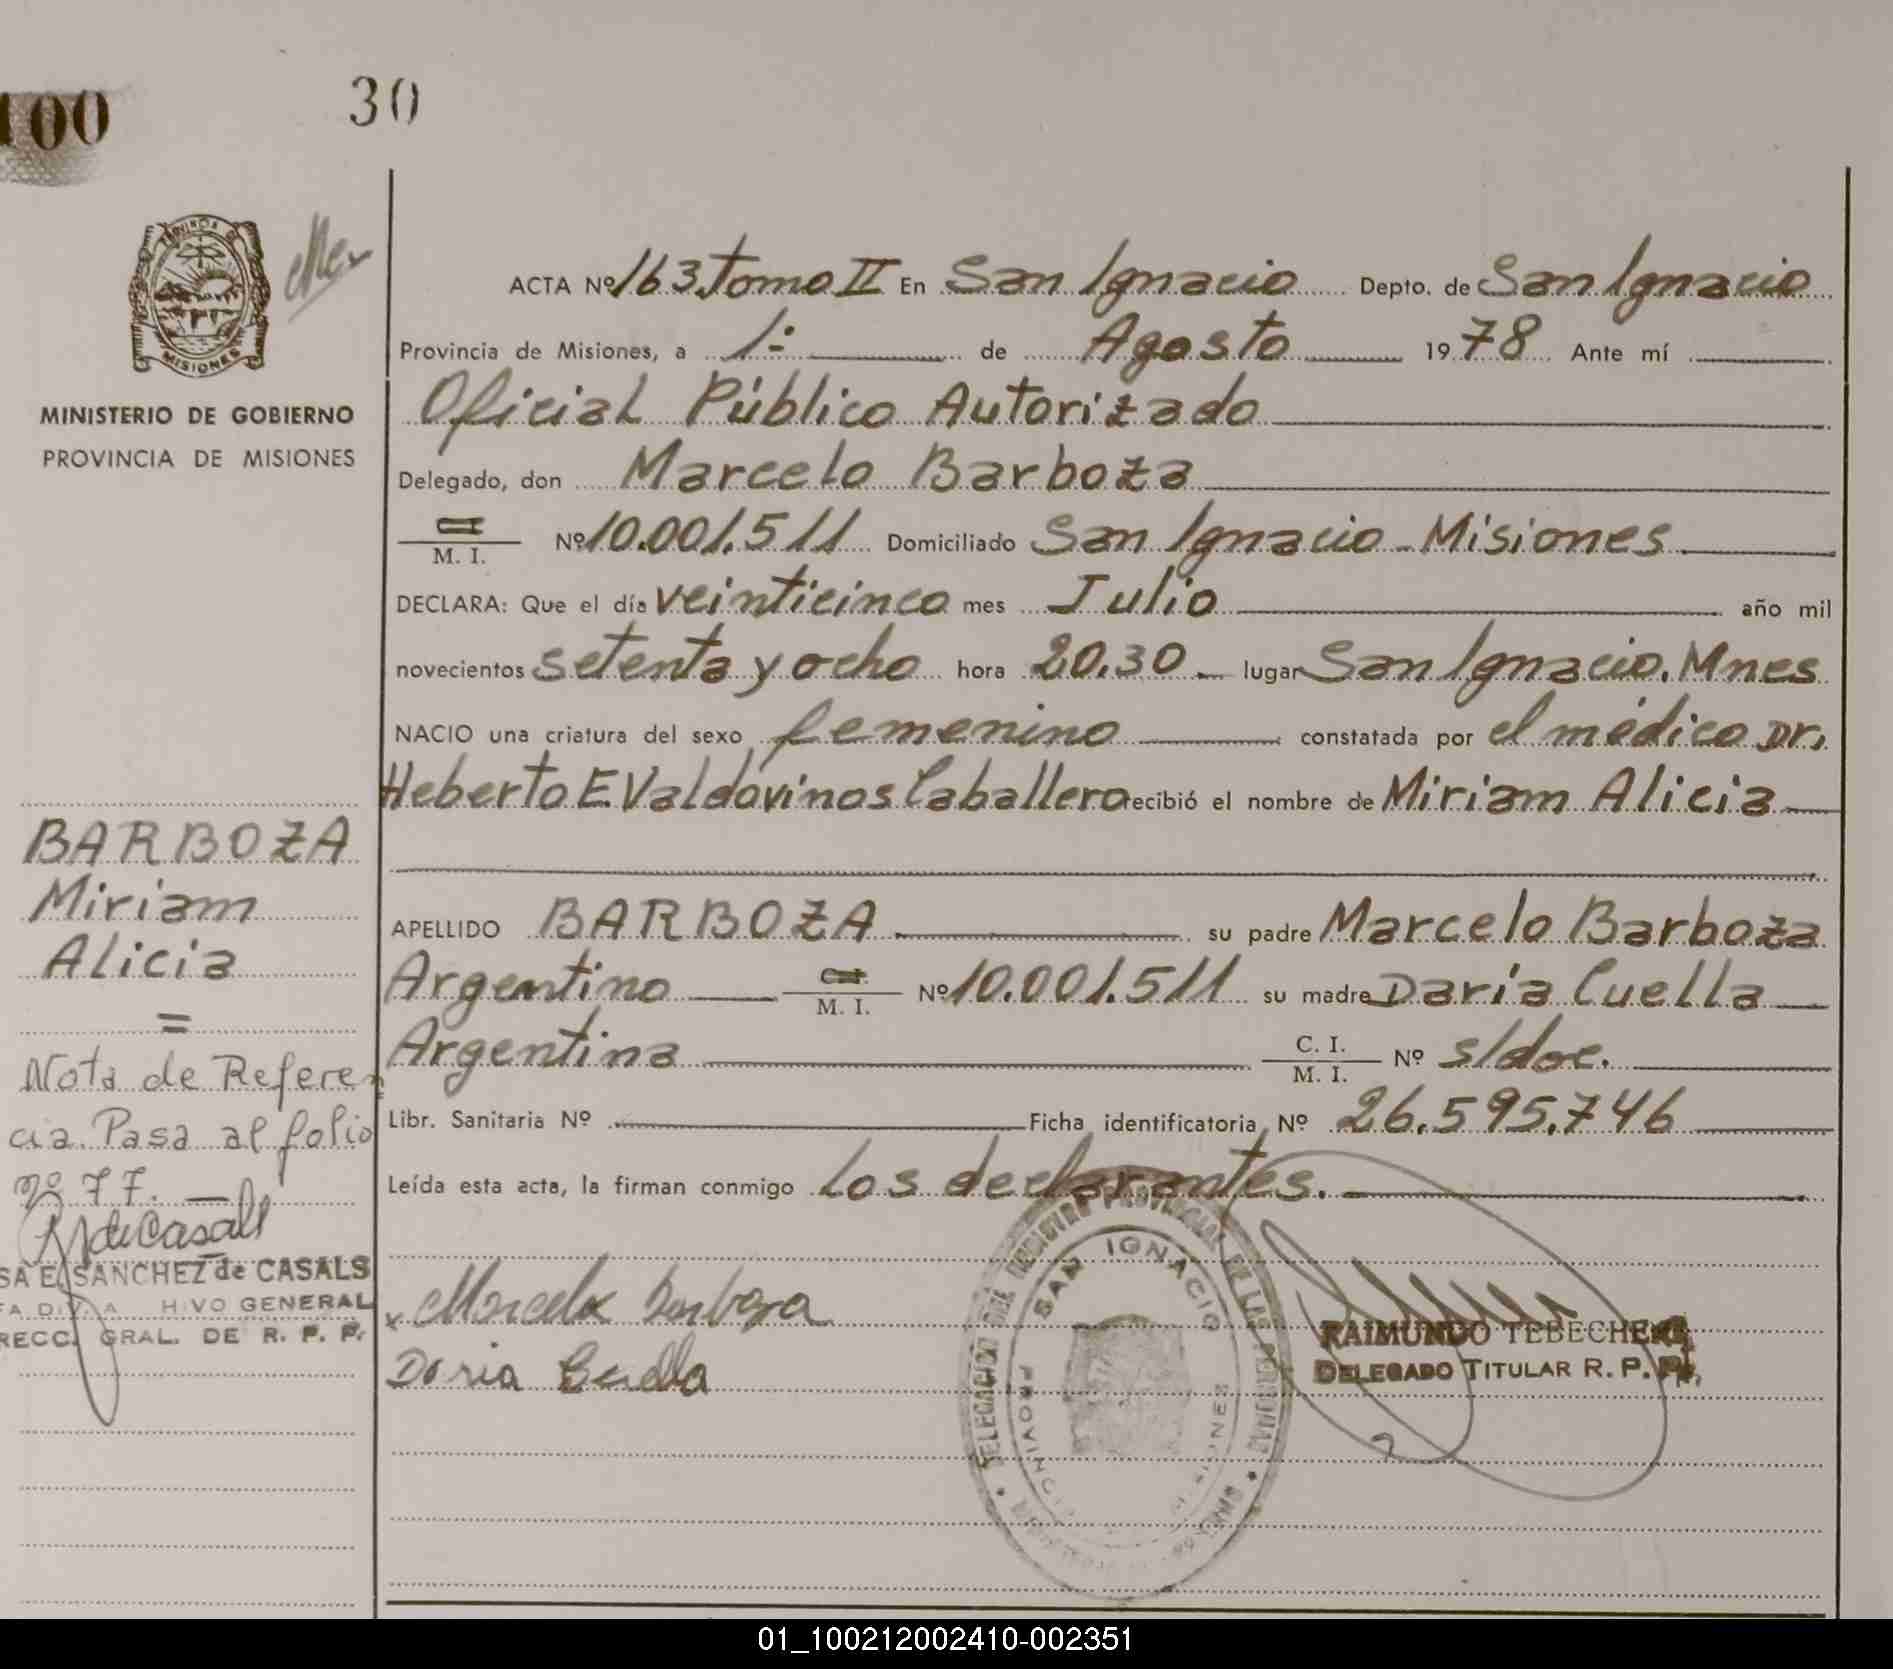 100
30
PROVINCIA DE
MISIONES
MINISTERIO DE GOBIERNO
PROVINCIA DE MISIONES
ACTA Nº 163 Tomo II En San Ignacio Depto. de San Ignacio
Provincia de Misiones, a 1º de Agosto 1978 Ante mí
Oficial Público Autorizado
Delegado, don Marcelo Barboza
M. I. Nº 10.001.511 Domiciliado San Ignacio - Misiones
DECLARA: Que el día veinticinco mes Julio año mil
novecientos setenta y ocho hora 20.30 lugar San Ignacio. Mnes
NACIO una criatura del sexo femenino constatada por el médico Dr.
Heberto E. Valdovinos Caballero recibió el nombre de Miriam Alicia
APELLIDO BARBOZA su padre Marcelo Barboza
Argentino M. I. Nº 10.001.511 su madre Daria Cuella
Argentina C. I. M. I. Nº s/doc.
Libr. Sanitaria Nº Ficha identificatoria Nº 26.595.746
Leída esta acta, la firman conmigo los declarantes.
BARBOZA
Miriam
Alicia
=
Nota de Referen
cia. Pasa al folio
nº 77. —
SA E. SANCHEZ de CASALS
GENERAL
RECC. GRAL. DE R. P. P.
Marcelo Barboza
Daria Cuella
SAN IGNACIO
PROVINCIA MISIONES
DELEGACION DEL REGISTRO PROVINCIAL DE LAS PERSONAS
RAIMUNDO TEBECHERI
DELEGADO TITULAR R. P. P.
01_100212002410-002351